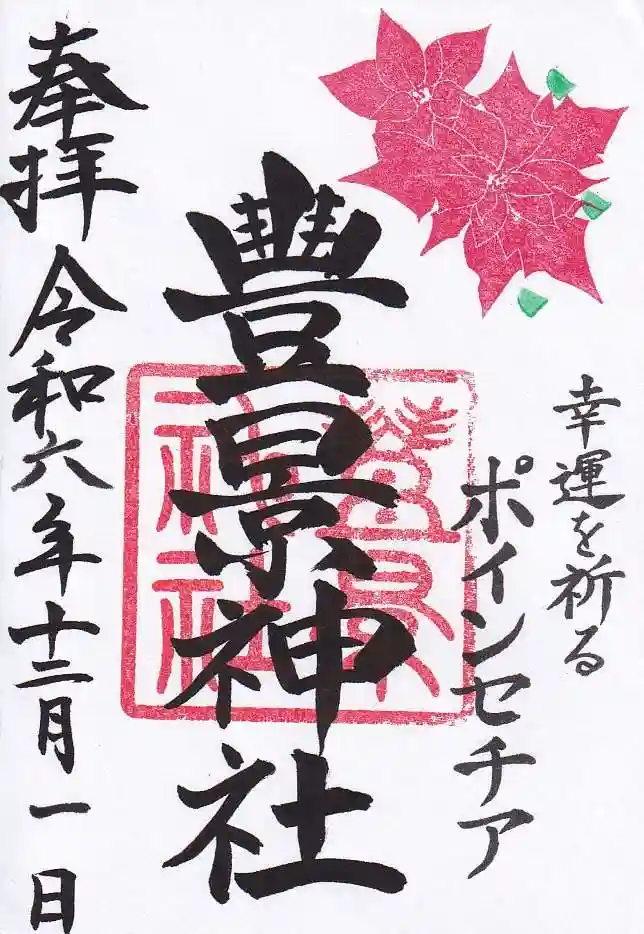 幸運を祈る
ポインセチア
豊景神社
奉拝 令和六年十二月一日